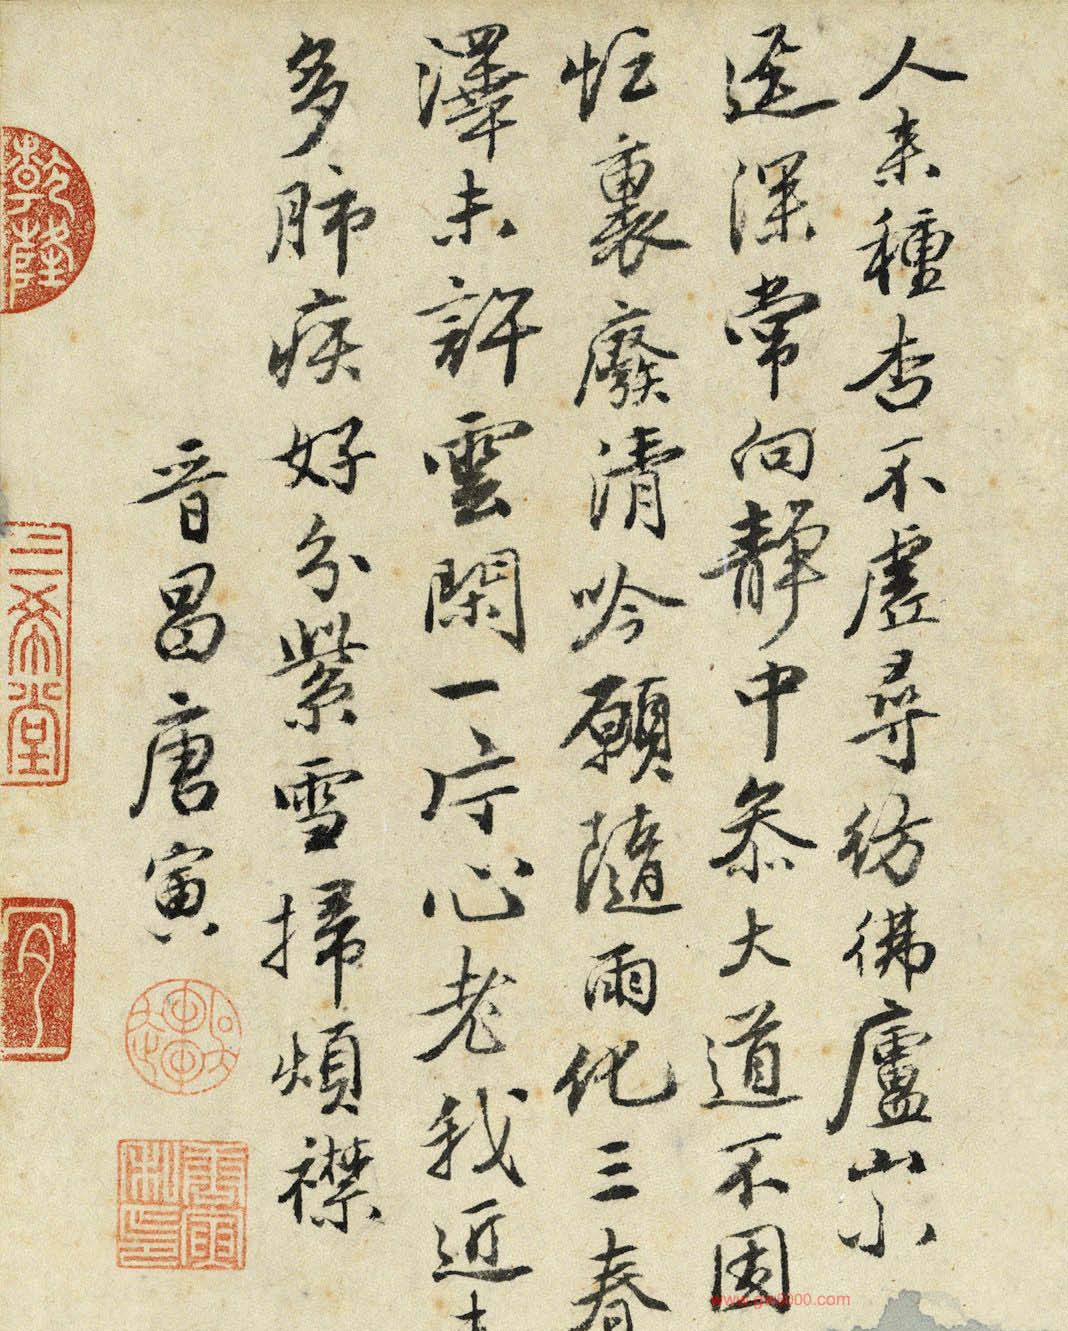 人來種杏不虛尋彷彿廬山小
逕深常向靜中參大道不因
忙裏廢清吟願隨雨化三春
澤未許雲閑一片心老我近來
多肺疾好分紫雪掃煩襟
晋昌唐寅
乾隆
三希堂
唐寅私印
www.gw8000.com